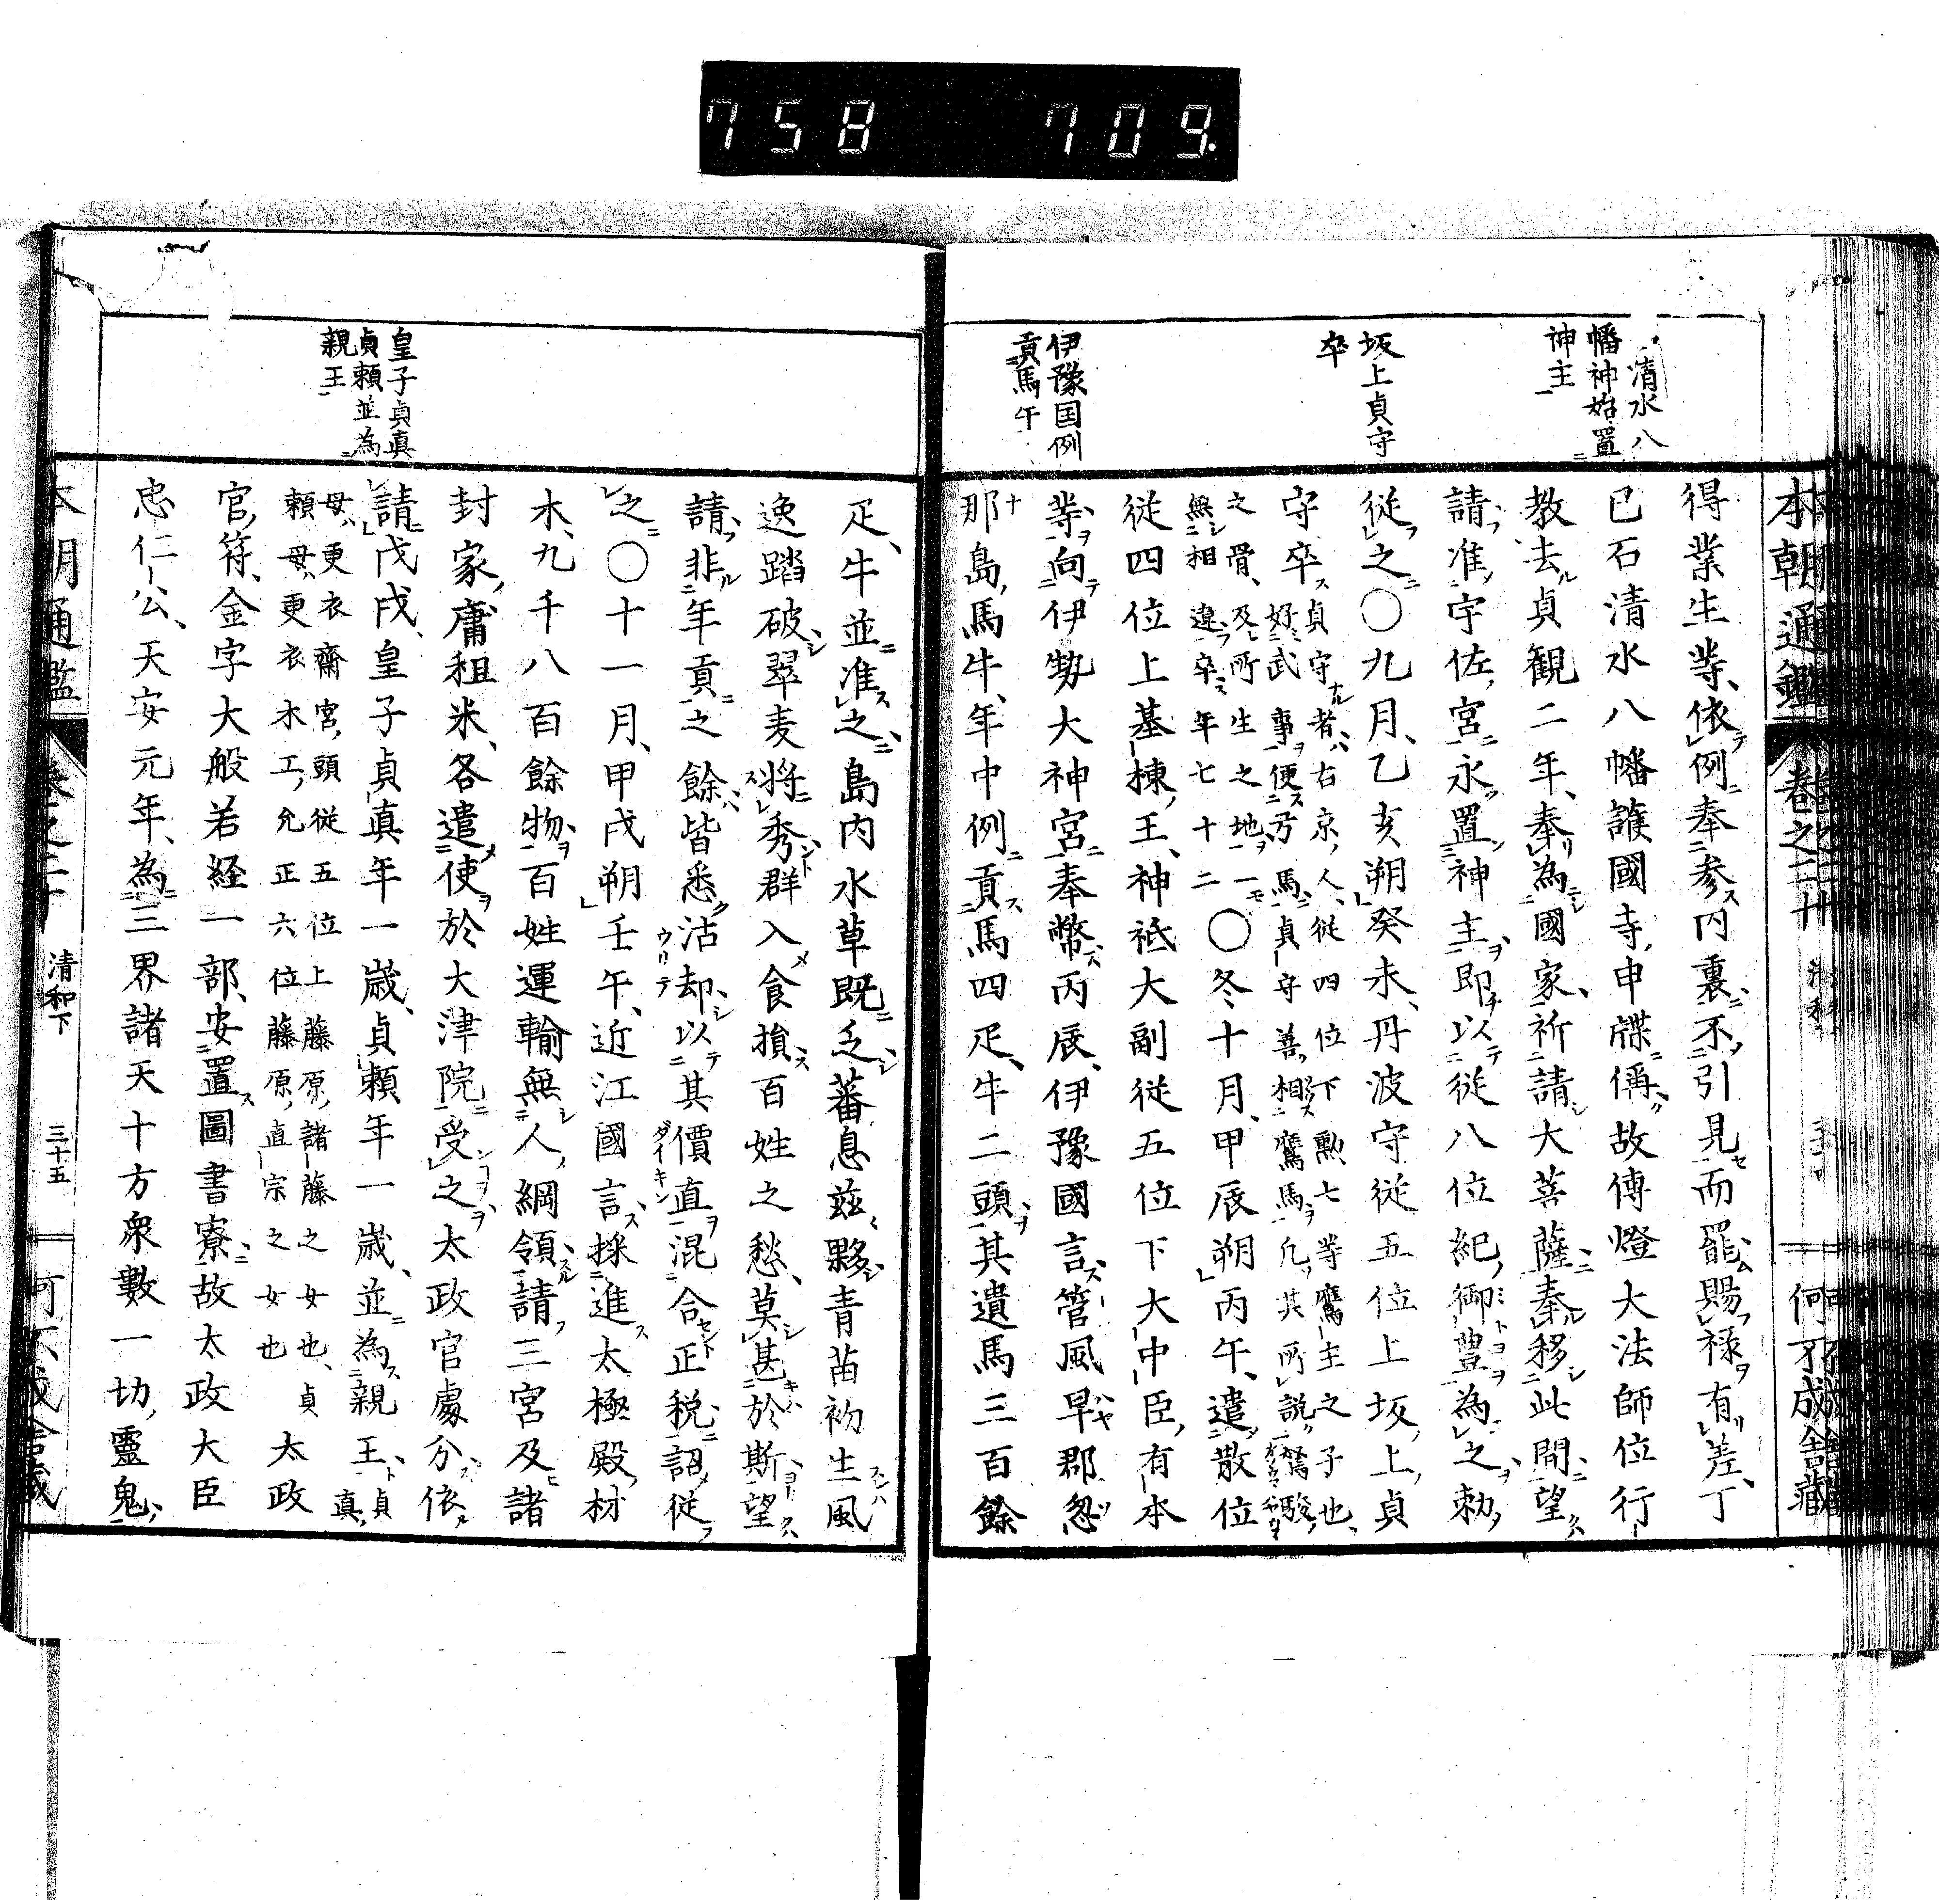 758 709.
本朝通鑑 卷之二十 何不成舎藏
清水八
幡神始置
神主
坂上貞守
卒
伊豫国例
貢馬牛
得業生等、依例奉参内裏、不引見而罷賜禄有差、丁
巳石清水八幡護國寺申牒偁、故傳燈大法師位行
教去貞観二年、奉為國家、祈請大菩薩奉移此間望
請准宇佐宮永置神主即以従八位紀御豊為之勅
従之〇九月、乙亥朔癸未、丹波守従五位上坂上貞
守卒貞守者、右京人、従四位下勲七等鷹主之子也、
好武事便弓馬貞守善相鷹馬凡其所説駑駿
之骨、及所生之地一
無相違卒年七十二〇冬十月、甲辰朔丙午、遣散位
従四位上基棟王、神祇大副従五位下大中臣有本
等向伊勢大神宮奉幣丙辰、伊豫國言管風早郡忽
那島、馬牛、年中例貢馬四疋、牛二頭其遺馬三百餘
疋、牛並准之島内水草既乏蕃息茲夥青苗初生風
逸踏破翠麦将秀群入食損百姓之愁、莫甚於斯望
請非年貢之餘皆悉沽却以其價直混合正税詔従
之〇十一月、甲戌朔壬午、近江國言採進太極殿材
木、九千八百餘物百姓運輸無人綱領請三宮及諸
封家庸租米、各遣使於大津院受之太政官處分依
請戊戌、皇子貞真年一歳、貞頼年一歳、並為親王貞
真
母更衣齋宮頭従五位上藤原諸藤之女也、貞
頼母更衣木工允正六位藤原直宗之女也
太政
官符、金字大般若経一部、安置圖書寮故太政大臣
忠仁公、天安元年、為三界諸天十方衆數一切靈鬼、
皇子貞真
貞頼並為
親王
清和下 三十五